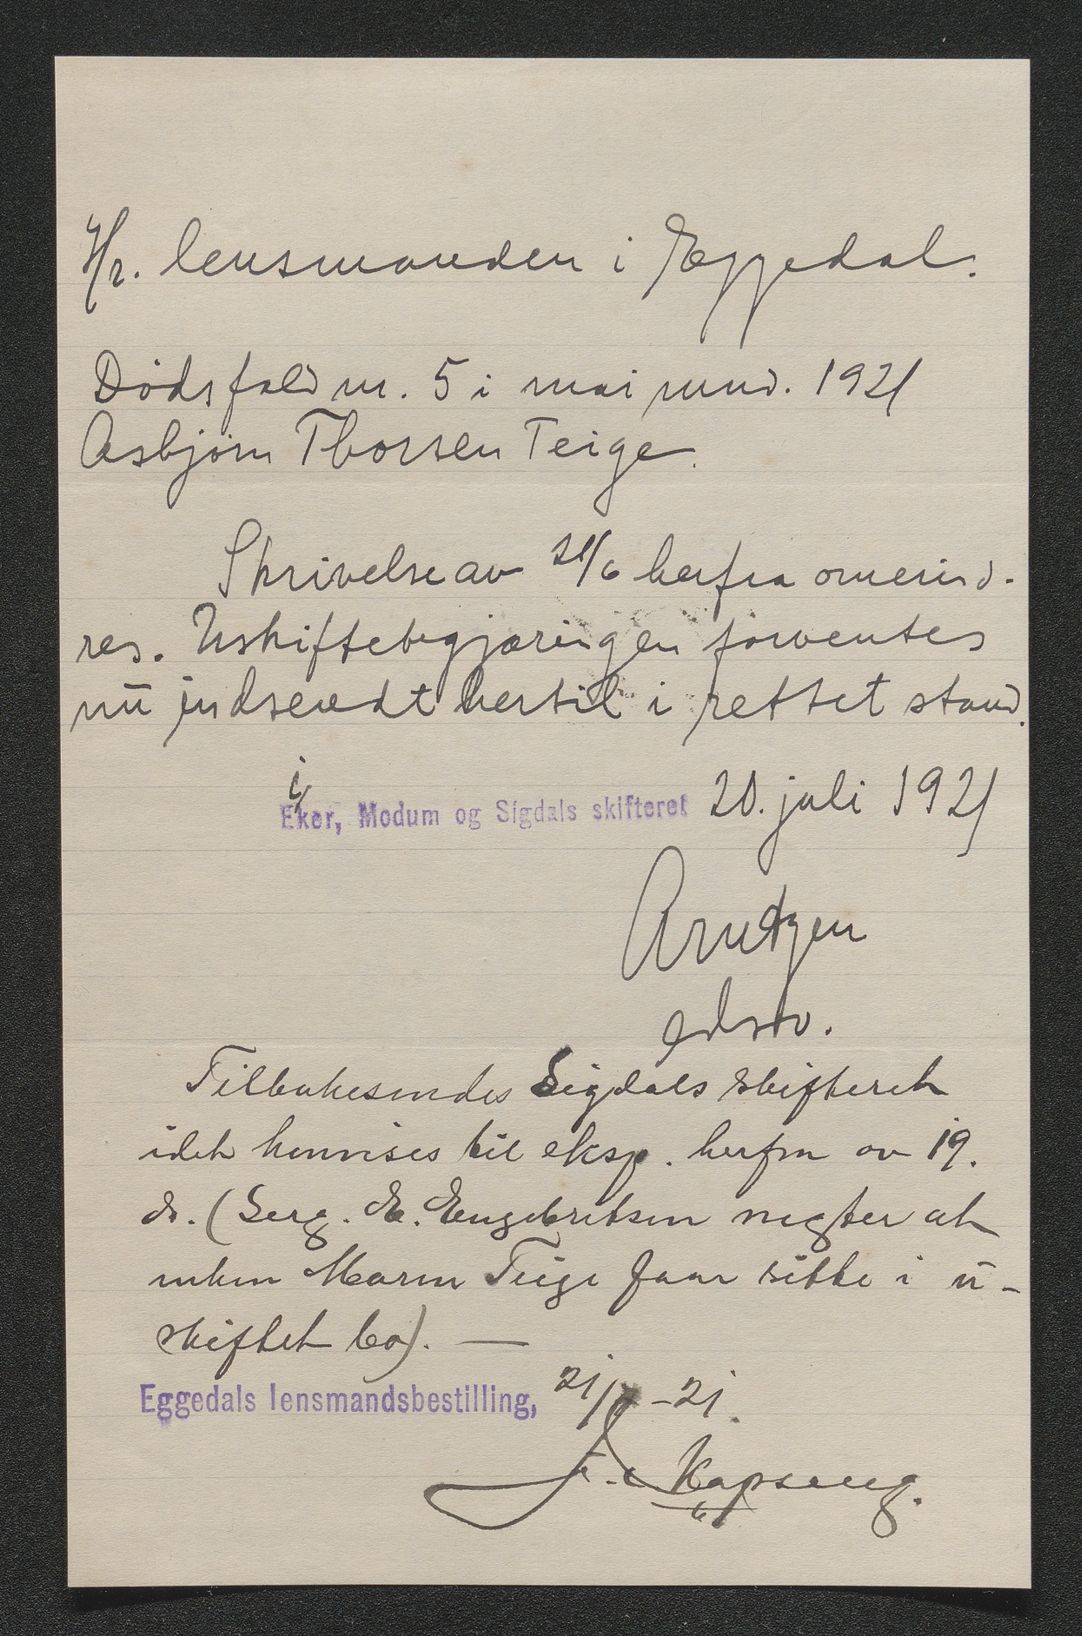 Hr. lensmanden i Eggedal.
Dødsfald nr. 5 i mai mnd. 1921
Asbjørn Thorsen Teige.
Skrivelse av 21/6 herfra omerind-
res. Uskiftebegjæringen forventes
nu indsendt hertil i rettet stand.
i
Eker, Modum og Sigdals skifteret 20. juli 1921
Arntzen
edsv.
Tilbakesendes Sigdals skifteret
idet henvises til eksp. herfra av 19.
ds. (Serg. E. Engebretsen negter at
enken Maren Teige faar sitte i u-
skiftet bo). —
Eggedals lensmandsbestilling, 21/7 - 21.
Kopseng.